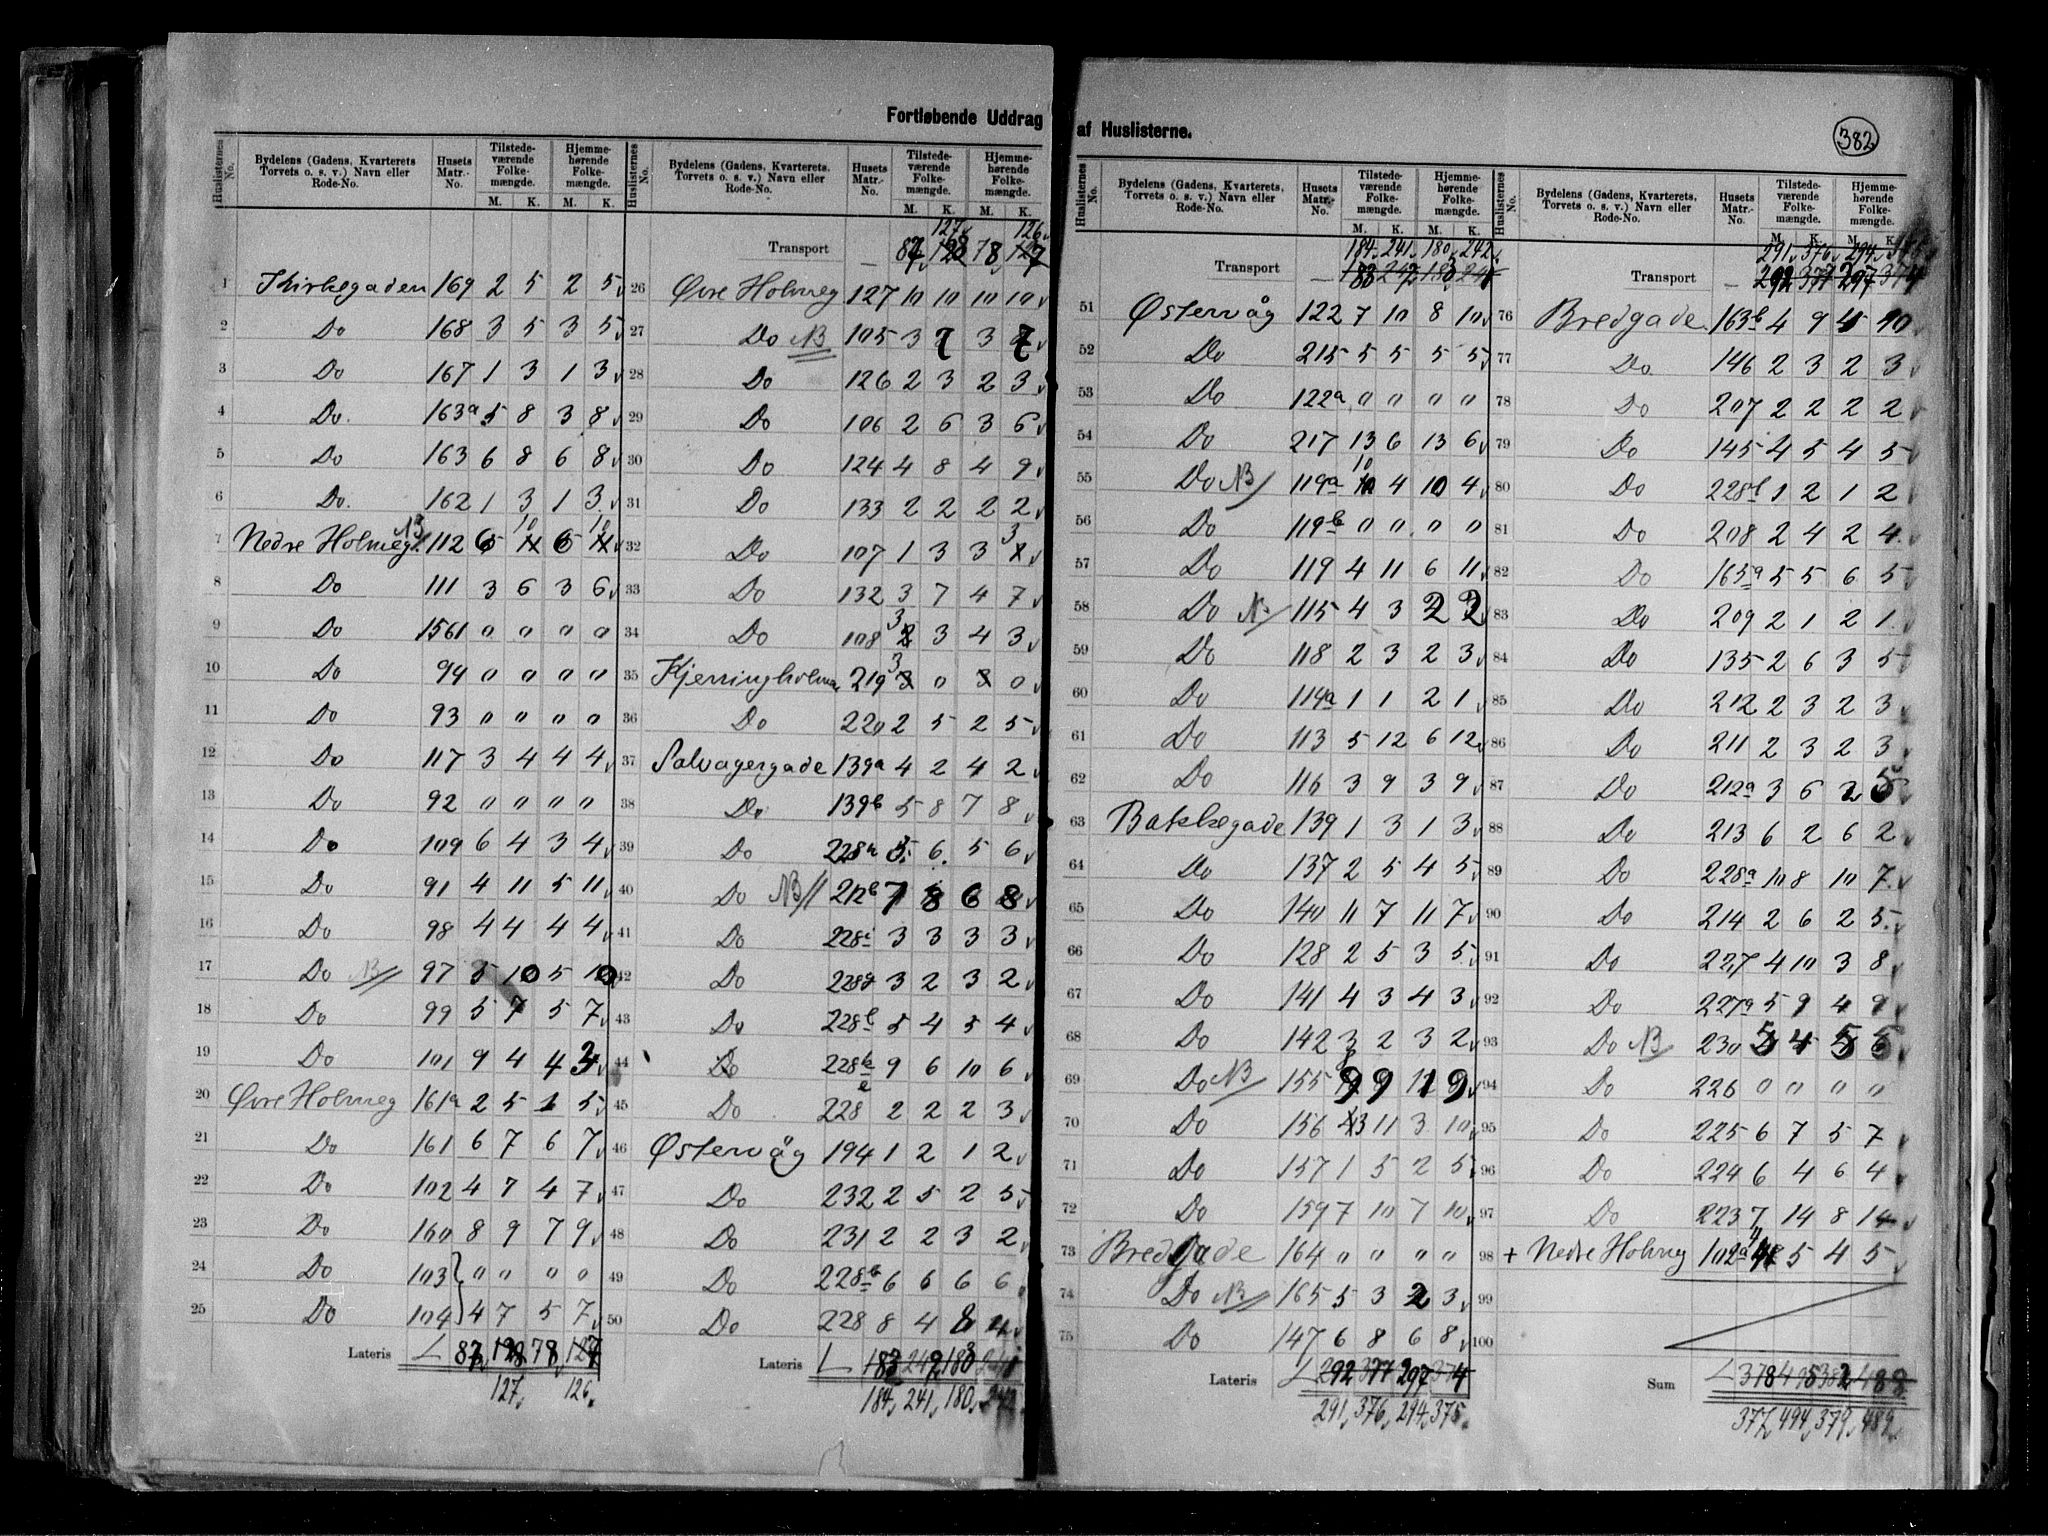 Fortløbende Uddrag af Huslisterne.
382
Huslisternes No. Bydelens (Gadens, Kvarterets Torvets o. s. v.) Navn eller Rode-No. Husets Matr.-No. Tilstedeværende Folkemængde. Hjemmehørende Folkemængde.
M. K. M. K.
1 Kirkegaden 169 2 5 2 5
2 Do 168 3 5 3 5
3 Do 167 1 3 1 3
4 Do. 163a 5 8 3 8
5 Do 163 6 8 6 8
6 Do. 162 1 3 1 3
7 Nedre Holmeg. NB 112 6 10 6 10
8 Do 111 3 6 3 6
9 Do 1561 0 0 0 0
10 Do 94 0 0 0 0
11 Do 93 0 0 0 0
12 Do 117 3 4 4 4
13 Do 92 0 0 0 0
14 Do 109 6 4 3 4
15 Do 91 4 11 5 11
16 Do 98 4 4 4 4
17 Do NB 97 5 10 5 10
18 Do 99 5 7 5 7
19 Do 101 9 4 4 3
20 Øvre Holmeg 161a 2 5 1 5
21 Do 161 6 7 6 7
22 Do 102 4 7 4 7
23 Do 160 8 9 7 9
24 Do 103 0 0 0 0
25 Do 104 4 7 5 7
Lateris 87 128 78 127
127 126
Huslisternes No. Bydelens (Gadens, Kvarterets, Torvets o. s. v.) Navn eller Rode-No. Husets Matr.-No. Tilstedeværende Folkemængde. Hjemmehørende Folkemængde.
M. K. M. K.
127 126
Transport 87 128 78 127
26 Øvre Holmeg 127 10 10 10 10
27 Do NB 105 3 7 3 7
28 Do 126 2 3 2 3
29 Do 106 2 6 3 6
30 Do 124 4 8 4 9
31 Do 133 2 2 2 2
32 Do 107 1 3 3 3
33 Do 132 3 7 4 7
34 Do 108 3 3 4 3
35 Kjerringholmen 219 3 0 3 0
36 Do 220 2 5 2 5
37 Salvagergade 139a 4 2 4 2
38 Do 139b 5 8 7 8
39 Do 228h 5 6 5 6
40 Do NB 212b 7 8 6 8
41 Do 228i 3 3 3 3
42 Do 228g 3 2 3 2
43 Do 228f 5 4 5 4
44 Do 228k 9 6 10 6
45 Do 228e 2 2 2 3
46 Østervåg 194 1 2 1 2
47 Do 232 2 5 2 5
48 Do 231 2 2 3 2
49 Do 228b 6 6 6 6
50 Do 228 8 4 8 4
Lateris 183 242 183 241
184 241 180 242
Huslisternes No. Bydelens (Gadens, Kvarterets, Torvets o. s. v.) Navn eller Rode-No. Husets Matr.-No. Tilstedeværende Folkemængde. Hjemmehørende Folkemængde.
M. K. M. K.
184 241 180 242
Transport 183 242 183 241
51 Østervåg 122 7 10 8 10
52 Do 215 5 5 5 5
53 Do 122a 0 0 0 0
54 Do 217 13 6 13 6
55 Do NB 119a 10 4 10 4
56 Do 119b 0 0 0 0
57 Do 119 4 11 6 11
58 Do N 115 4 3 2 2
59 Do 118 2 3 2 3
60 Do 114a 1 1 2 1
61 Do 113 5 12 6 12
62 Do 116 3 9 3 9
63 Bakkegade 139 1 3 1 3
64 Do 137 2 5 4 5
65 Do 140 11 7 11 7
66 Do 128 2 5 3 5
67 Do 141 4 3 4 3
68 Do 142 3 2 3 2
69 Do NB 155 9 9 9
70 Do 156 3 11 3 10
71 Do 157 1 5 2 5
72 Do 159 7 10 7 10
73 Bredgade 164 0 0 0 0
74 Do NB 165 5 3 2 3
75 Do 147 6 8 6 8
Lateris 292 377 297 374
291 376 294 375
Huslisternes No. Bydelens (Gadens, Kvarterets, Torvets o. s. v.) Navn eller Rode-No. Husets Matr.-No. Tilstedeværende Folkemængde. Hjemmehørende Folkemængde.
M. K. M. K.
291 376 294 375
Transport 292 377 297 374
76 Bredgade 163b 4 9 4 10
77 Do. 146 2 3 2 3
78 Do 207 2 2 2 2
79 Do 145 4 5 4 5
80 Do 228l 1 2 1 2
81 Do 208 2 4 2 4
82 Do 165a 5 5 6 5
83 Do 209 2 1 2 1
84 Do 135 2 6 3 5
85 Do 212 2 3 2 3
86 Do 211 2 3 2 3
87 Do 212a 3 6 2 5
88 Do 213 6 2 6 2
89 Do 228a 10 8 10 7
90 Do 214 2 6 2 5
91 Do 227 4 10 3 8
92 Do 227a 5 9 4 9
93 Do NB 230 5 4 5 5
94 Do 226 0 0 0 0
95 Do 225 6 7 5 7
96 Do 224 6 4 6 4
97 Do 223 7 14 8 14
98 + Nedre Holmeg 102a 4 5 4 5
99
100
Sum 378 495 382 488
377 494 379 489